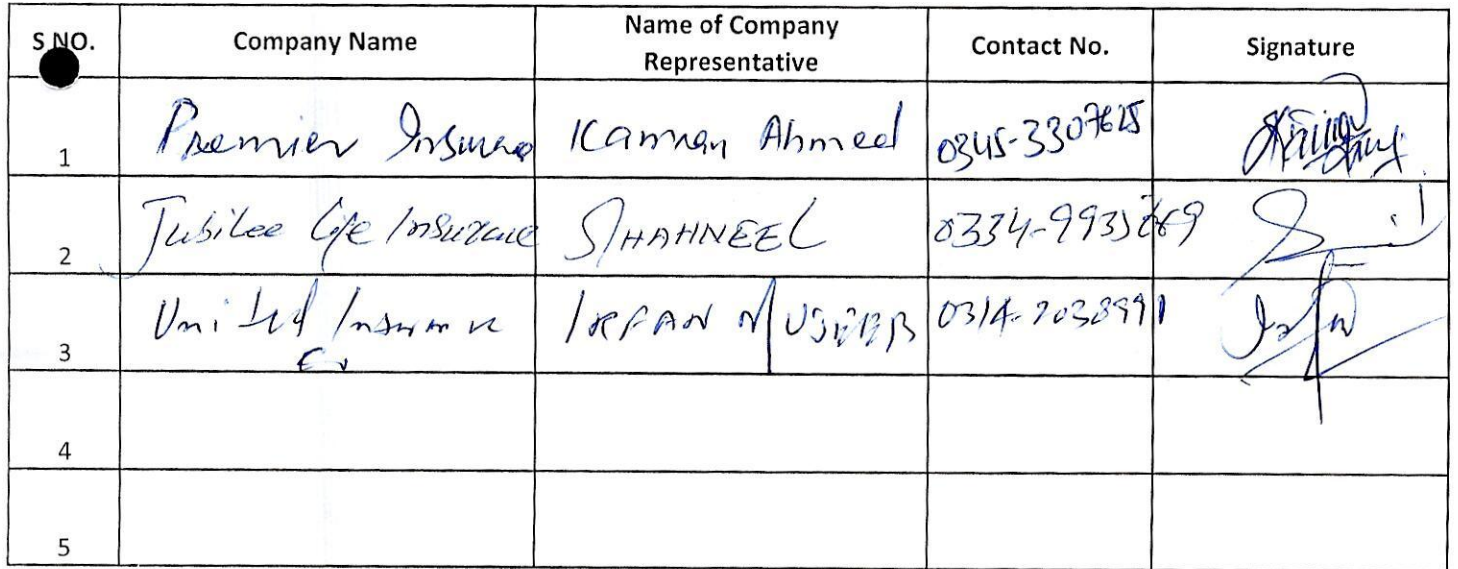 S NO. Company Name Name of Company Representative Contact No. Signature
1 Premier Insurance Kamran Ahmed 0345-3307625
2 Jubilee Life Insurance SHAHNEEL 0334-
3 United Insurance IRFAN
4
5